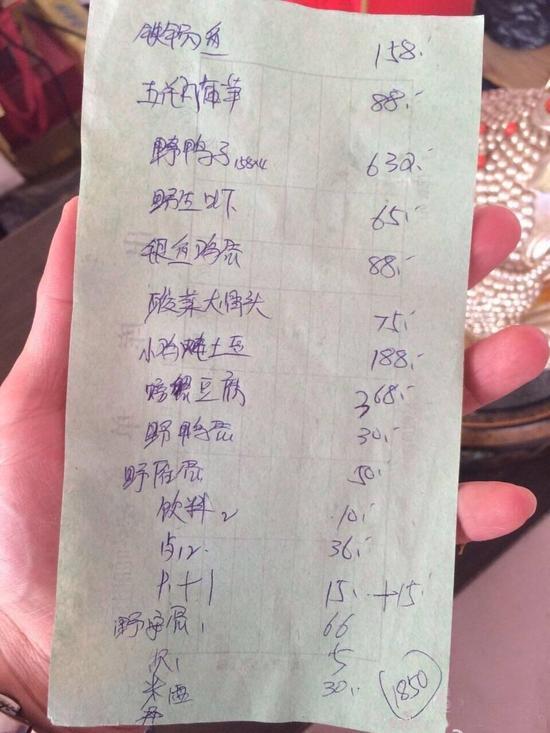 铁锅鱼 158.-
五花肉 88.-
野鸭子 158×4 632.-
野生 65.-
银鱼鸡蛋 88.-
酸菜大骨头 75.-
小鸡炖土豆 188.-
螃蟹豆腐 368.-
野鸭蛋 30.-
野 蛋 50.-
饮料2 10.-
12. 36.-
15. +15.-
野 蛋1 66
1 5
米酒 30.- 1850